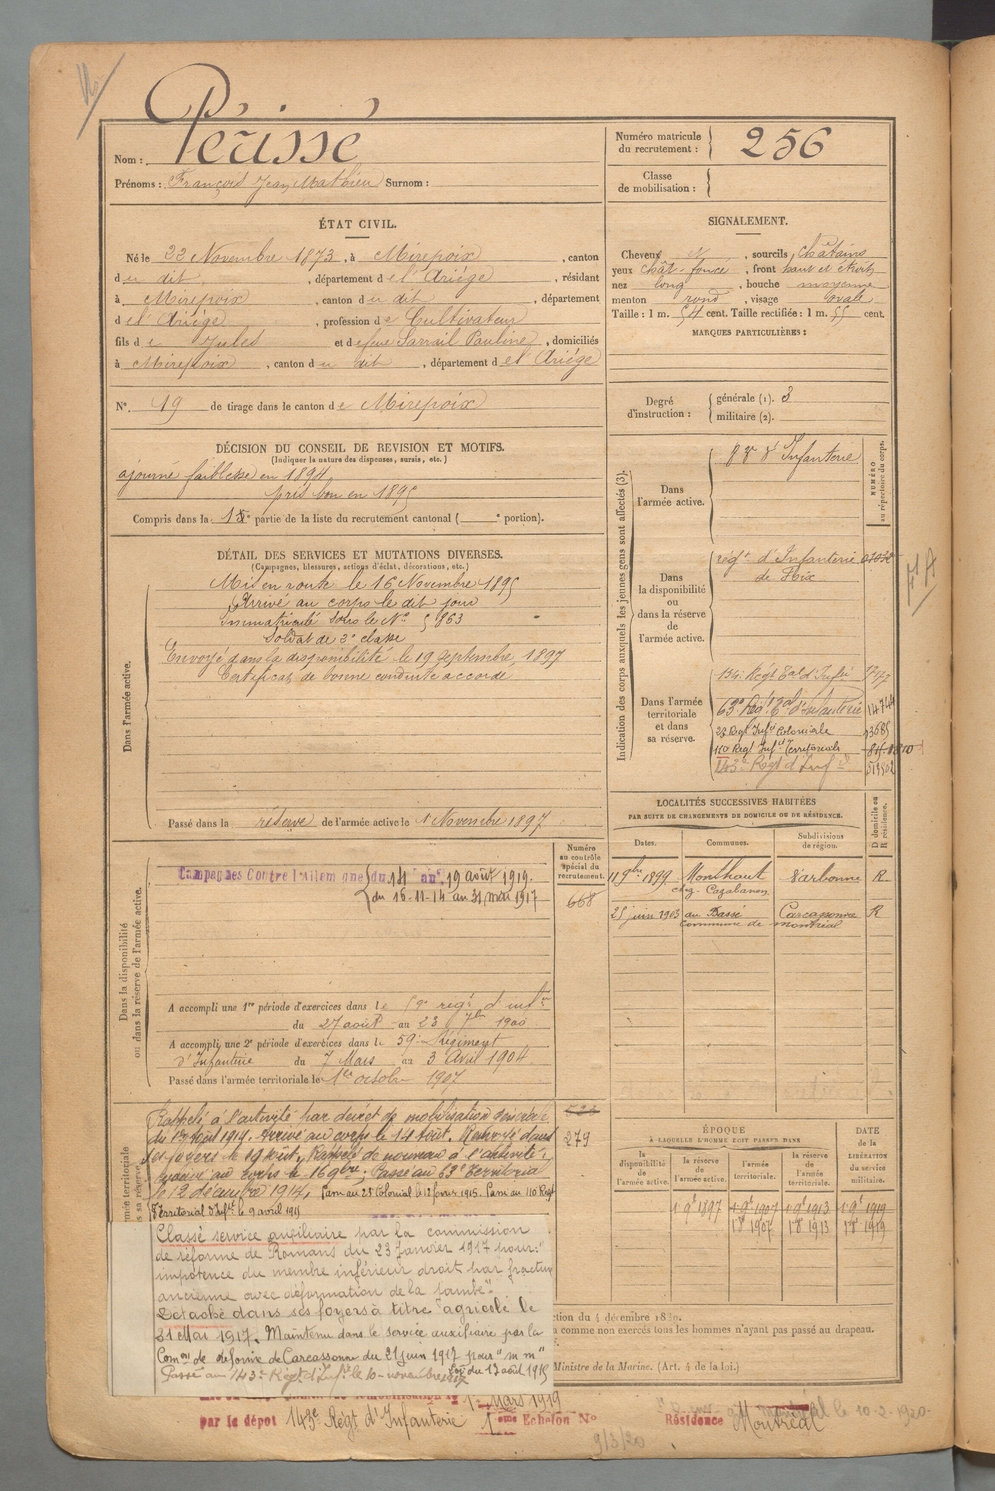 Nom : Périssé
Prénoms : François Jean Mathieu Surnom :
Numéro matricule du recrutement : 256
Classe de mobilisation :
ÉTAT CIVIL.
Né le 22 Novembre 1873, à Mirepoix, canton
du dit, département de l'Ariège, résidant
à Mirepoix, canton du dit, département
de l'Ariège, profession de Cultivateur
fils de Jules et de feue Sarrail Pauline, domiciliés
à Mirepoix, canton du dit, département de l'Ariège
N° 19 de tirage dans le canton de Mirepoix
SIGNALEMENT.
Cheveux et, sourcils châtains
yeux chât. foncé, front haut et étroit
nez long, bouche moyenne
menton rond, visage ovale
Taille : 1 m. 54 cent. Taille rectifiée : 1 m. 55 cent.
MARQUES PARTICULIÈRES :
Degré d'instruction : générale (1). 3
militaire (2).
DÉCISION DU CONSEIL DE REVISION ET MOTIFS.
(Indiquer la nature des dispenses, sursis, etc.)
ajourné faiblesse en 1894
pris bon en 1895
Compris dans la 1e partie de la liste du recrutement cantonal ( e portion).
DÉTAIL DES SERVICES ET MUTATIONS DIVERSES.
(Campagnes, blessures, actions d'éclat, décorations, etc.)
Dans l'armée active.
Mis en route le 16 Novembre 1895
Arrivé au corps le dit jour
Immatriculé sous le N° 5863
Soldat de 2e classe
Envoyé dans la disponibilité le 19 septembre 1897
Certificat de bonne conduite accordé
Passé dans la réserve de l'armée active le 1 Novembre 1897
Indication des corps auxquels les jeunes gens sont affectés (3).
NUMÉRO au répertoire du corps.
Dans l'armée active.
d'Infanterie
Dans la disponibilité ou dans la réserve de l'armée active.
régt d'Infanterie
de Foix
Dans l'armée territoriale et dans sa réserve.
134e Régt Tal d'Infie
63e Régt Tal d'Infanterie 14744
2e Regt Infie Coloniale 13685
110 Regt Infie Territoriale
143e Régt d'Infie
LOCALITÉS SUCCESSIVES HABITÉES
PAR SUITE DE CHANGEMENTS DE DOMICILE OU DE RÉSIDENCE.
Dates. Communes. Subdivisions de région. D domicile ou R résidence.
11 9bre 1899 Monthaut Narbonne R
chez Cazalanon
25 juin 1903 au Bassé Carcassonne R
Commune de Montréal
Dans la disponibilité ou dans la réserve de l'armée active.
Numéro au contrôle spécial du recrutement.
668
Campagnes Contre l'Allemagne du 14 au 19 août 1914.
du 16-11-14 au 31 mai 1917
A accompli une 1re période d'exercices dans le 59e régt d'inf
du 27 août au 23 7bre 1900
A accompli une 2e période d'exercices dans le 59e Régiment
d'Infanterie du 7 Mars au 3 Avril 1904
Passé dans l'armée territoriale le 1er octobre 1907
279
Rappelé à l'activité par décret de mobilisation générale
du 1er Août 1914. Arrivé au corps le 14 Août. Renvoyé dans
ses foyers le 19 Août. Rappelé de nouveau à l'activité,
arrivé au corps le 16 9bre. Passé au 63e Territorial
le 12 décembre 1914, Passé au 2e Colonial le 12 février 1915. Passé au 110 Regt
Territorial d'Infie le 9 avril 1915
Classé service auxiliaire par la commission
de réforme de Romans du 23 Janvier 1917 pour :"
impotence du membre inférieur droit par fracture
ancienne avec déformation de la jambe".
Détaché dans ses foyers à titre agricole le
31 Mai 1917. Maintenu dans le service auxiliaire par la
Comon de réforme de Carcassonne du 21 juin 1917 pour "m m"
Passé au 143e Régt d'Infie le 10 novembre 1917
Loi du 13 août 1915
ÉPOQUE
A LAQUELLE L'HOMME DOIT PASSER DANS
la disponibilité de l'armée active. la réserve de l'armée active. l'armée territoriale. la réserve de l'armée territoriale.
DATE de la LIBÉRATION du service militaire.
1 9bre 1897 1 9bre 1907 1 9bre 1913 1 9bre 1919
1 8bre 1907 1 8bre 1913 1 8bre 1919
ction du 4 décembre 1889.
a comme non exercés tous les hommes n'ayant pas passé au drapeau.
Ministre de la Marine. (Art. 4 de la loi.)
1er Mars 1919
par le dépôt 143e Régt d'Infanterie 1ème Echelon N° Résidence Montréal
le 10-2-1920
9/3/20